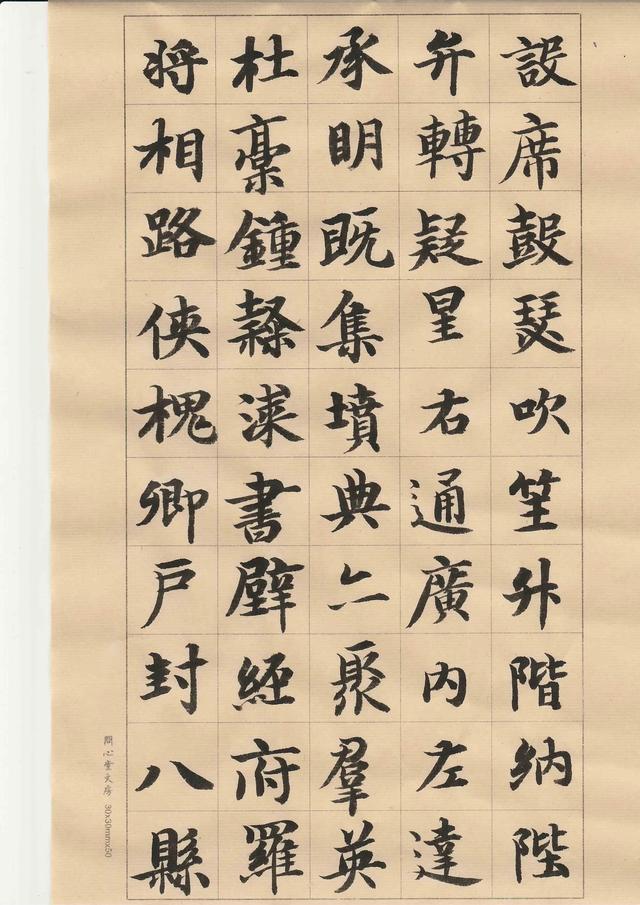 設席鼓瑟吹笙升階納陛
弁轉疑星右通廣內左達
承明既集墳典亦聚羣英
杜稾鍾隸漆書壁經府羅
將相路俠槐卿戶封八縣
問心堂文房 30x30mmx50